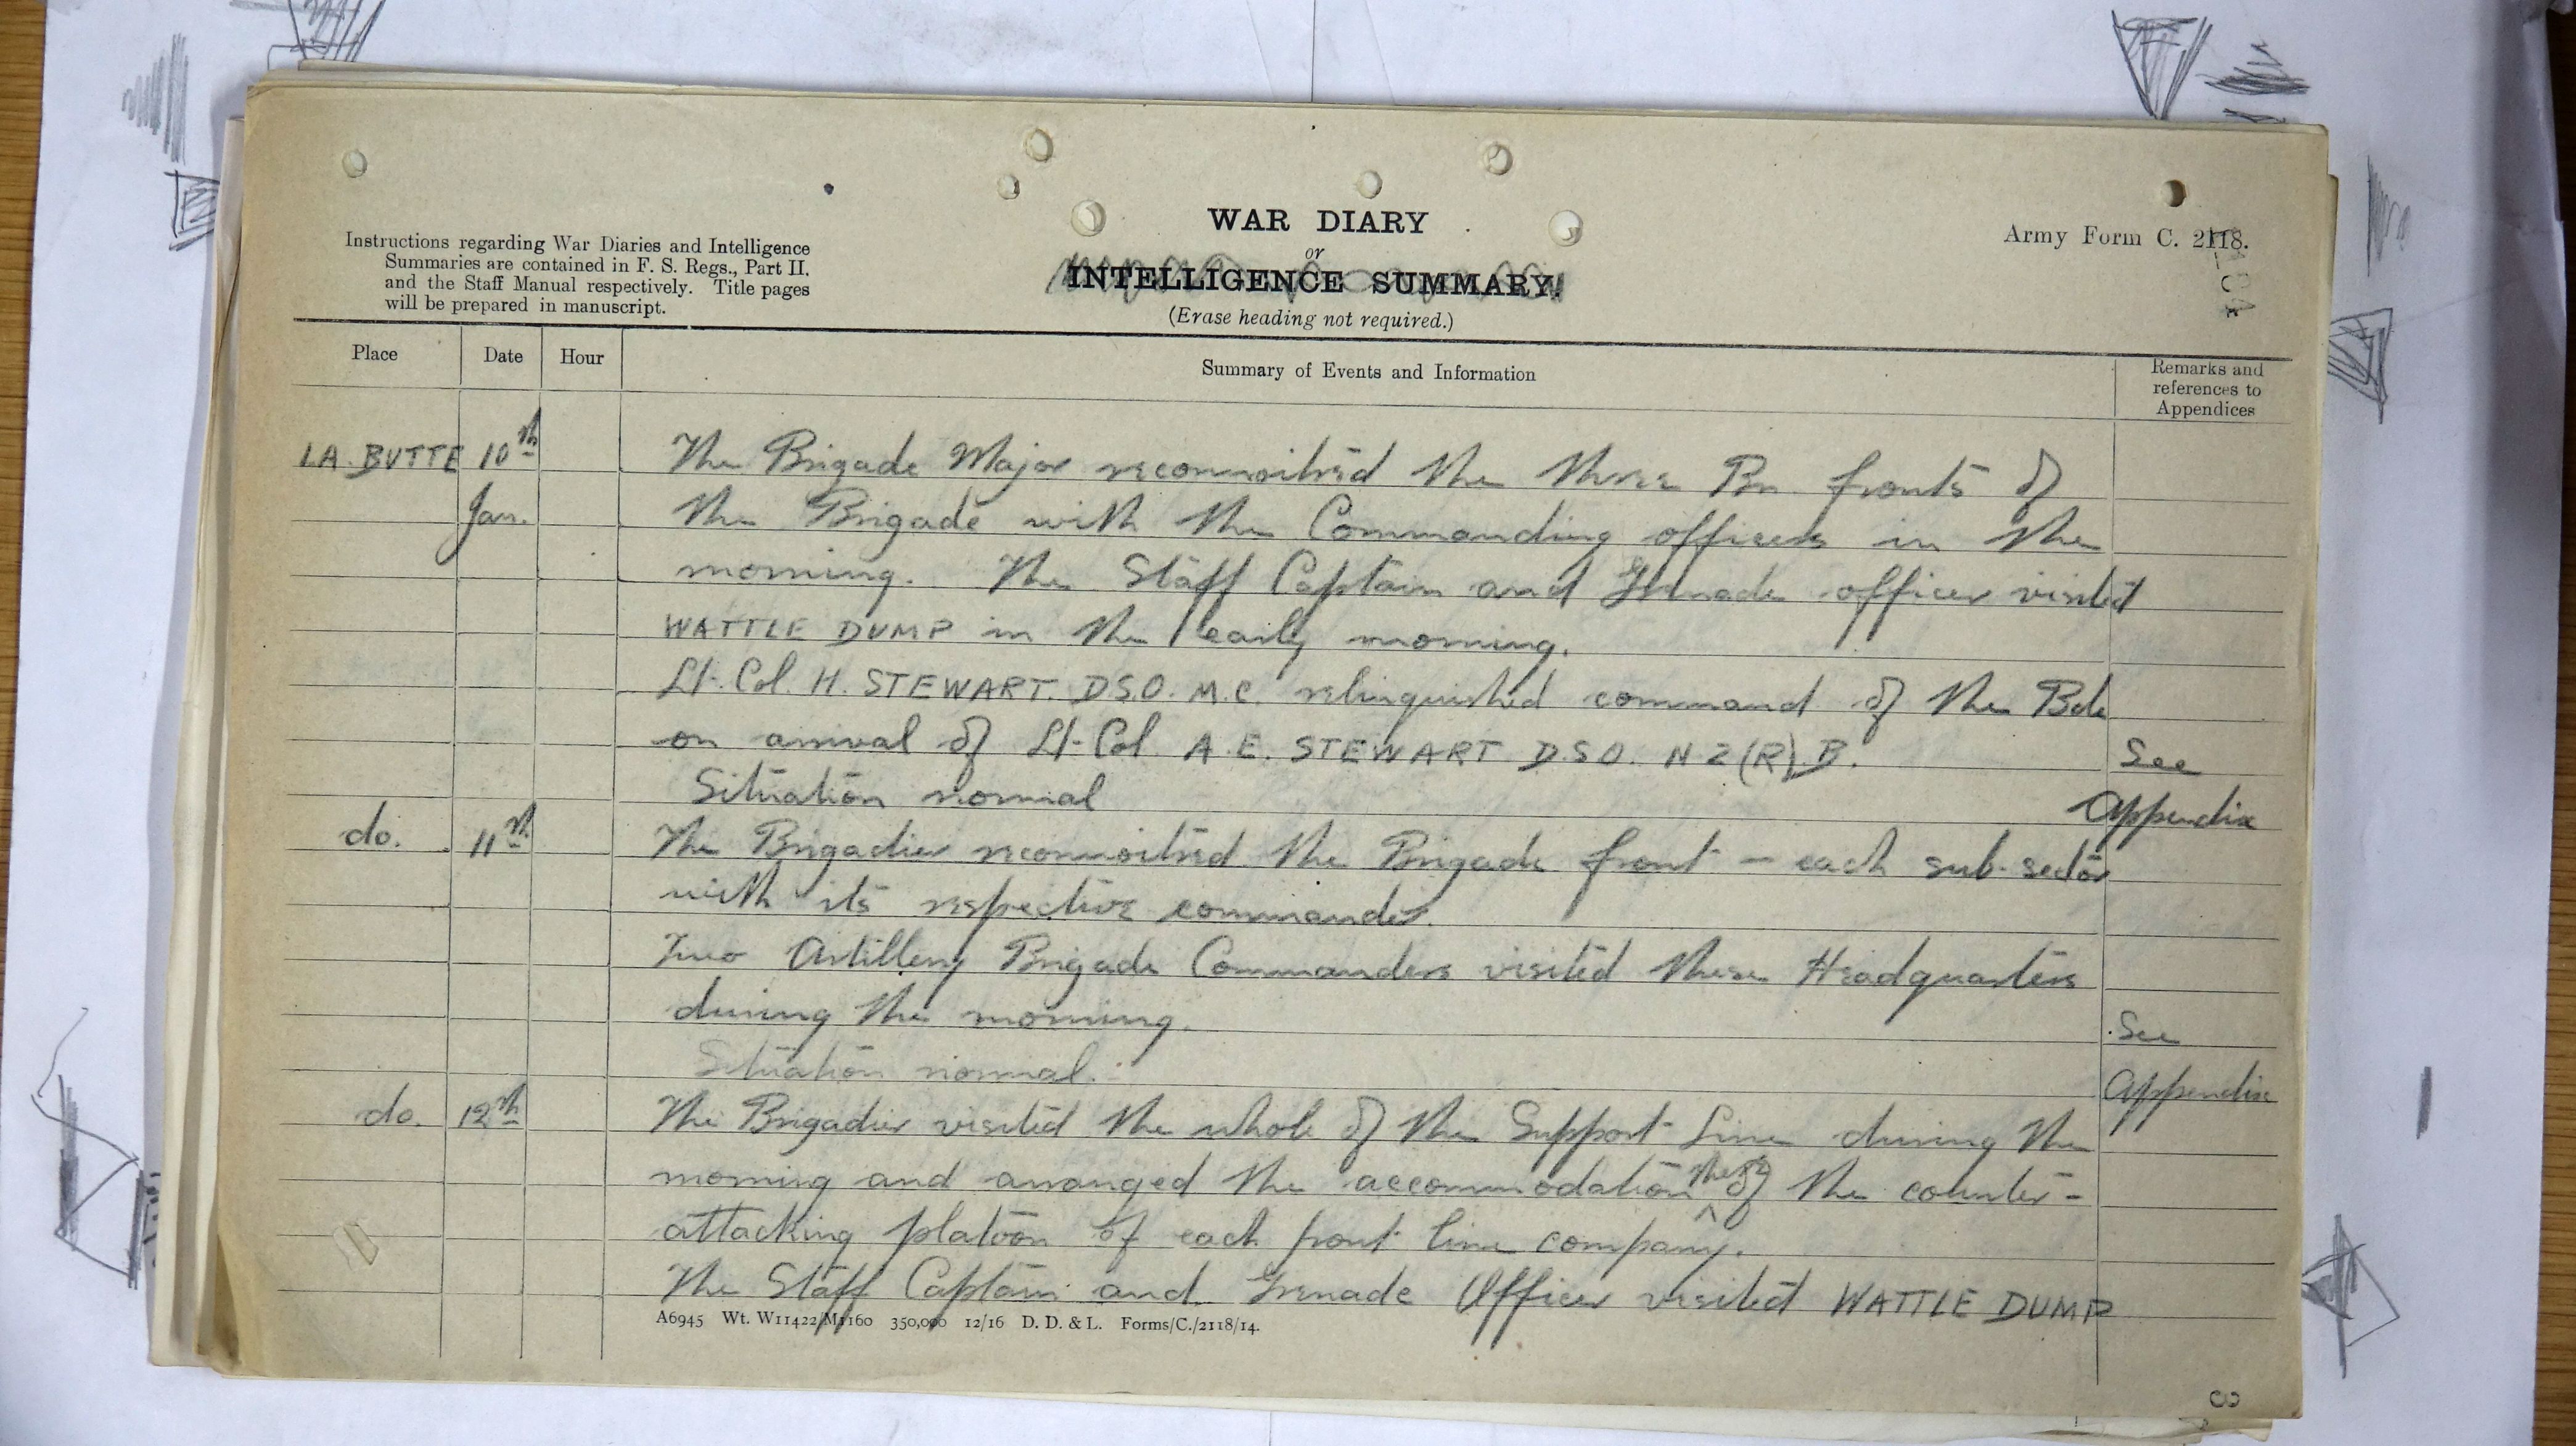 WAR DIARY
or
INTELLIGENCE SUMMARY.
(Erase heading not required.)
Instructions regarding War Diaries and Intelligence
Summaries are contained in F. S. Regs., Part II.
and the Staff Manual respectively. Title pages
will be prepared in manuscript.
Army Form C. 2118.
Place Date Hour Summary of Events and Information Remarks and
references to
Appendices
LA BUTTE 10th The Brigade Major reconnoitred the three Bn. fronts of
Jan. the Brigade with the Commanding officers in the
morning. The Staff Captain and Grenade officer visited
WATTLE DUMP in the early morning.
Lt-Col. H. STEWART. D.S.O. M.C. relinquished command of the Bde
on arrival of Lt-Col. A.E. STEWART D.S.O. N Z (R) B. See
Situation normal Appendix
do. 11th The Brigadier reconnoitred the Brigade front - each sub-sector
with its respective commander.
Two Artillery Brigade Commanders visited these Headquarters
during the morning. See
Situation normal. Appendix
do. 12th The Brigadier visited the whole of the Support Line during the
morning and arranged the accommodation there of the counter-
attacking platoon of each front line company.
The Staff Captain and Grenade Officer visited WATTLE DUMP
A6945 Wt. W11422/M1160 350,000 12/16 D. D. & L. Forms/C./2118/14.